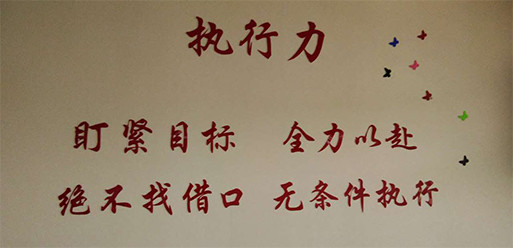 执行力
盯紧目标 全力以赴
绝不找借口 无条件执行